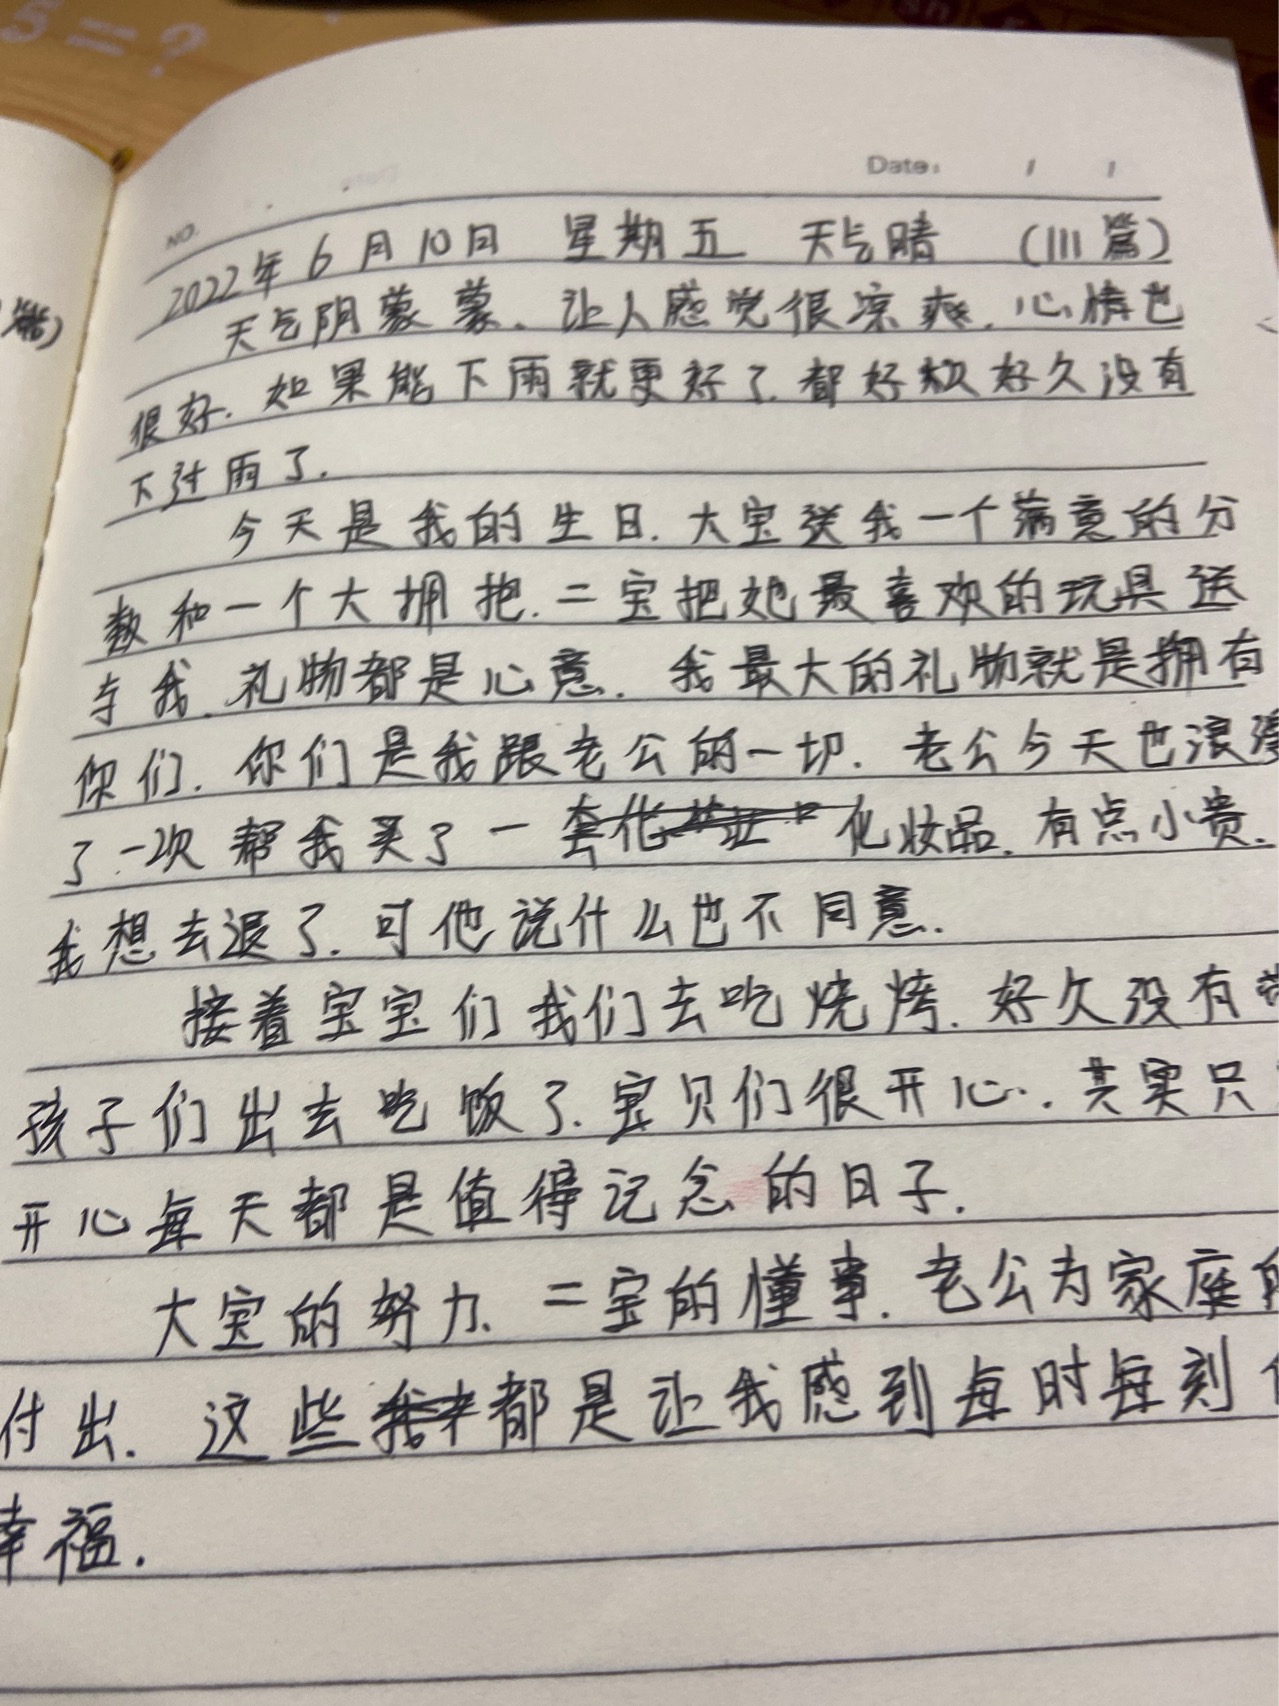 5=?
Date: / /
NO.
2022年6月10日 星期五 天气晴 (111篇)
天气阴蒙蒙、让人感觉很凉爽.心情也
很好.如果能下雨就更好了.都好欤好久没有
下过雨了.
今天是我的生日.大宝送我一个满意的分
数和一个大拥抱.二宝把她最喜欢的玩具送
与我.礼物都是心意.我最大的礼物就是拥有
你们.你们是我跟老公的一切.老公今天也浪漫
了一次帮我买了一套化妆品.有点小贵.
我想去退了.可他说什么也不同意.
接着宝宝们我们去吃烧烤.好久没有带
孩子们出去吃饭了.宝贝们很开心.其实只
开心每天都是值得记念的日子.
大宝的努力、二宝的懂事.老公为家庭的
付出.这些都是让我感到每时每刻
幸福.